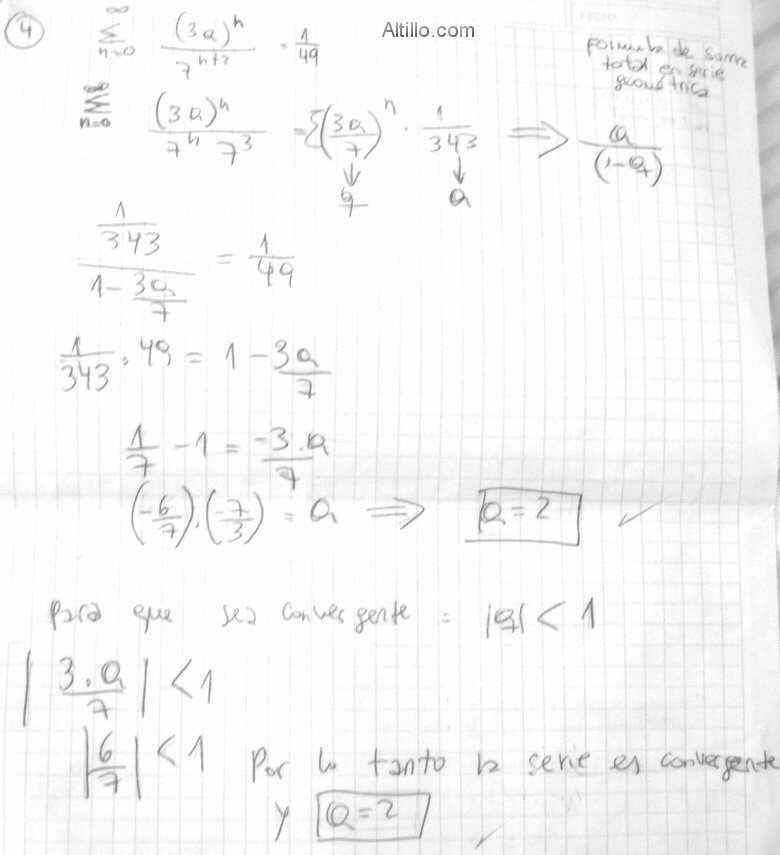 Altillo.com
④ ∞ Σ n=0 (3a)^n / 7^(n+3) = 1/49
formula de suma
total en serie
geometrica
∞ Σ n=0 (3a)^n / 7^n 7^3 = Σ(3a/7)^n · 1/343 ⇒ a/(1-q)
↓ ↓
q a
(1/343) / (1 - 3a/7) = 1/49
1/343 · 49 = 1 - 3a/7
1/7 - 1 = -3.a/7
(-6/7).(-7/3) = a ⇒ a = 2 ✓
para que sea convergente = |q| < 1
|3.a/7| < 1
|6/7| < 1 Por lo tanto la serie es convergente
y a = 2 ✓